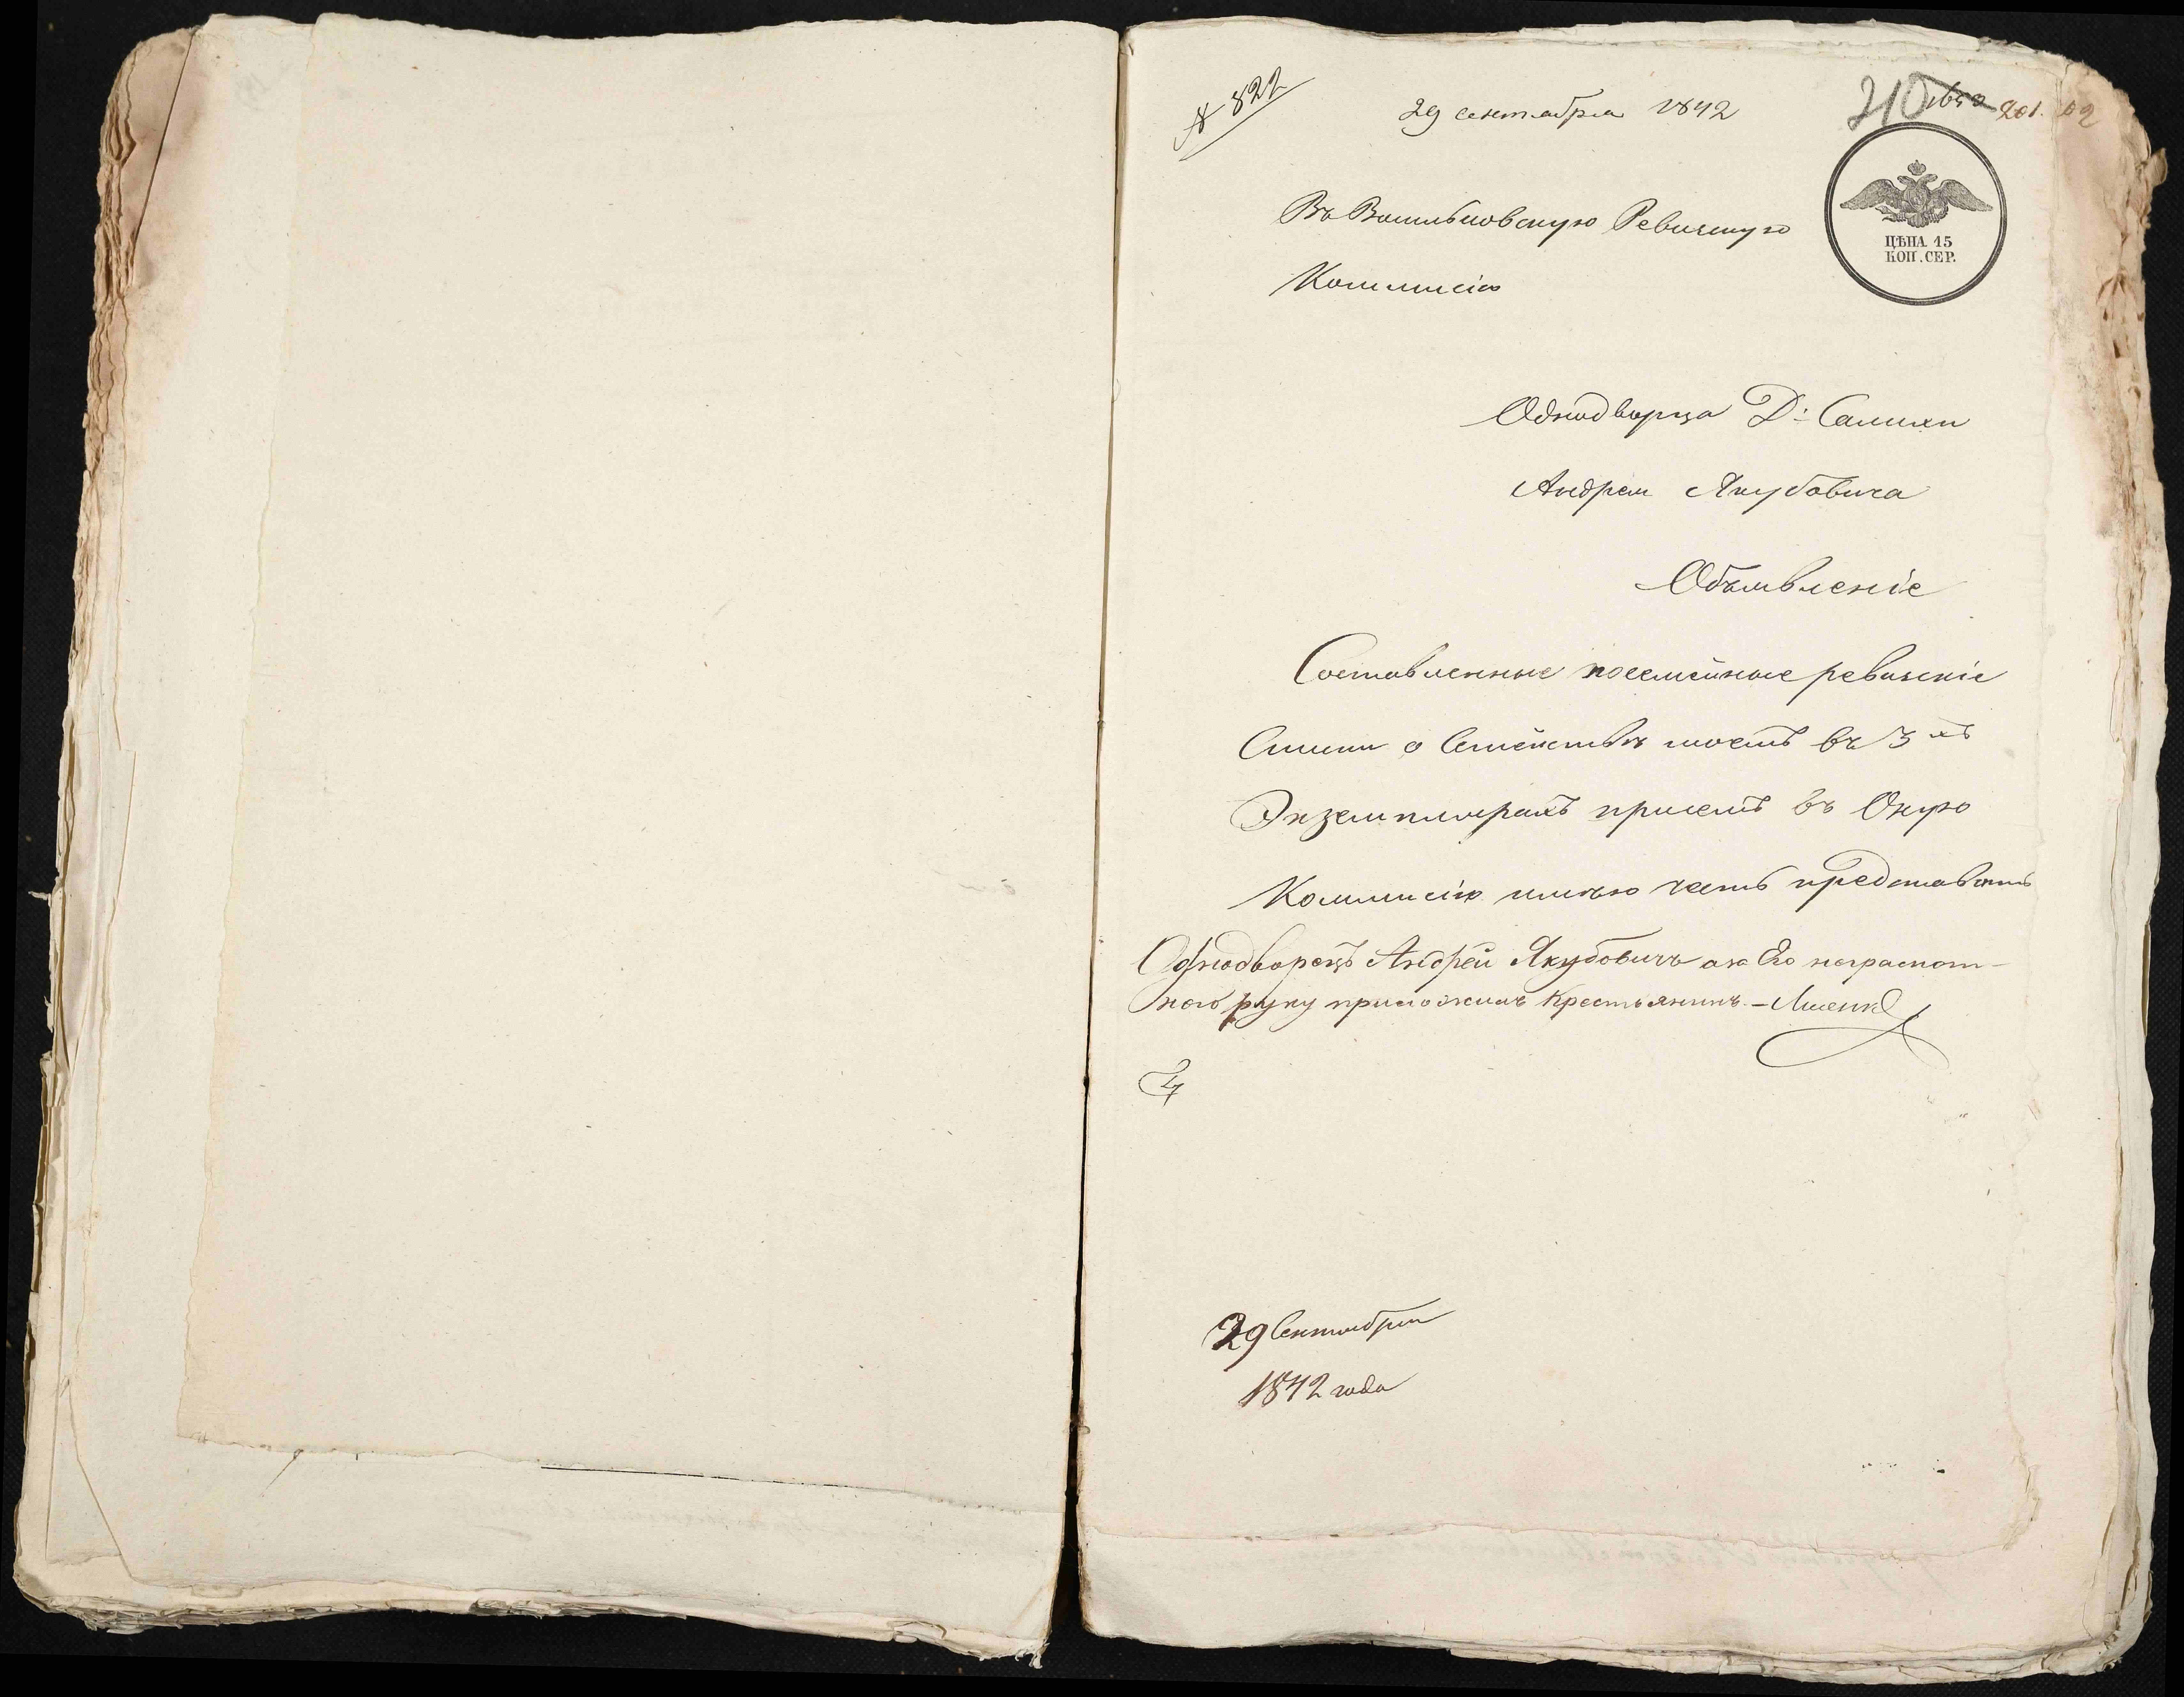 № 822
29 сентября 1842
210 1652 201. 102
ЦѢНА 15
КОП. СЕР.
Въ Васильковскую Ревизскую
Коммисію
Однодворца Д: Салихи
Андрея Якубовича
Объявленіе
Составленные посемейные ревизскіе
Сказки о Семействѣ моемъ въ 3хъ
Экземплярахъ при семъ въ Оную
Коммисію имѣю честь представить
Однодворецъ Андрей Якубовичъ а за Его неграмот-
ного руку приложилъ Крестьянинъ –
29 Сентября
1842 года